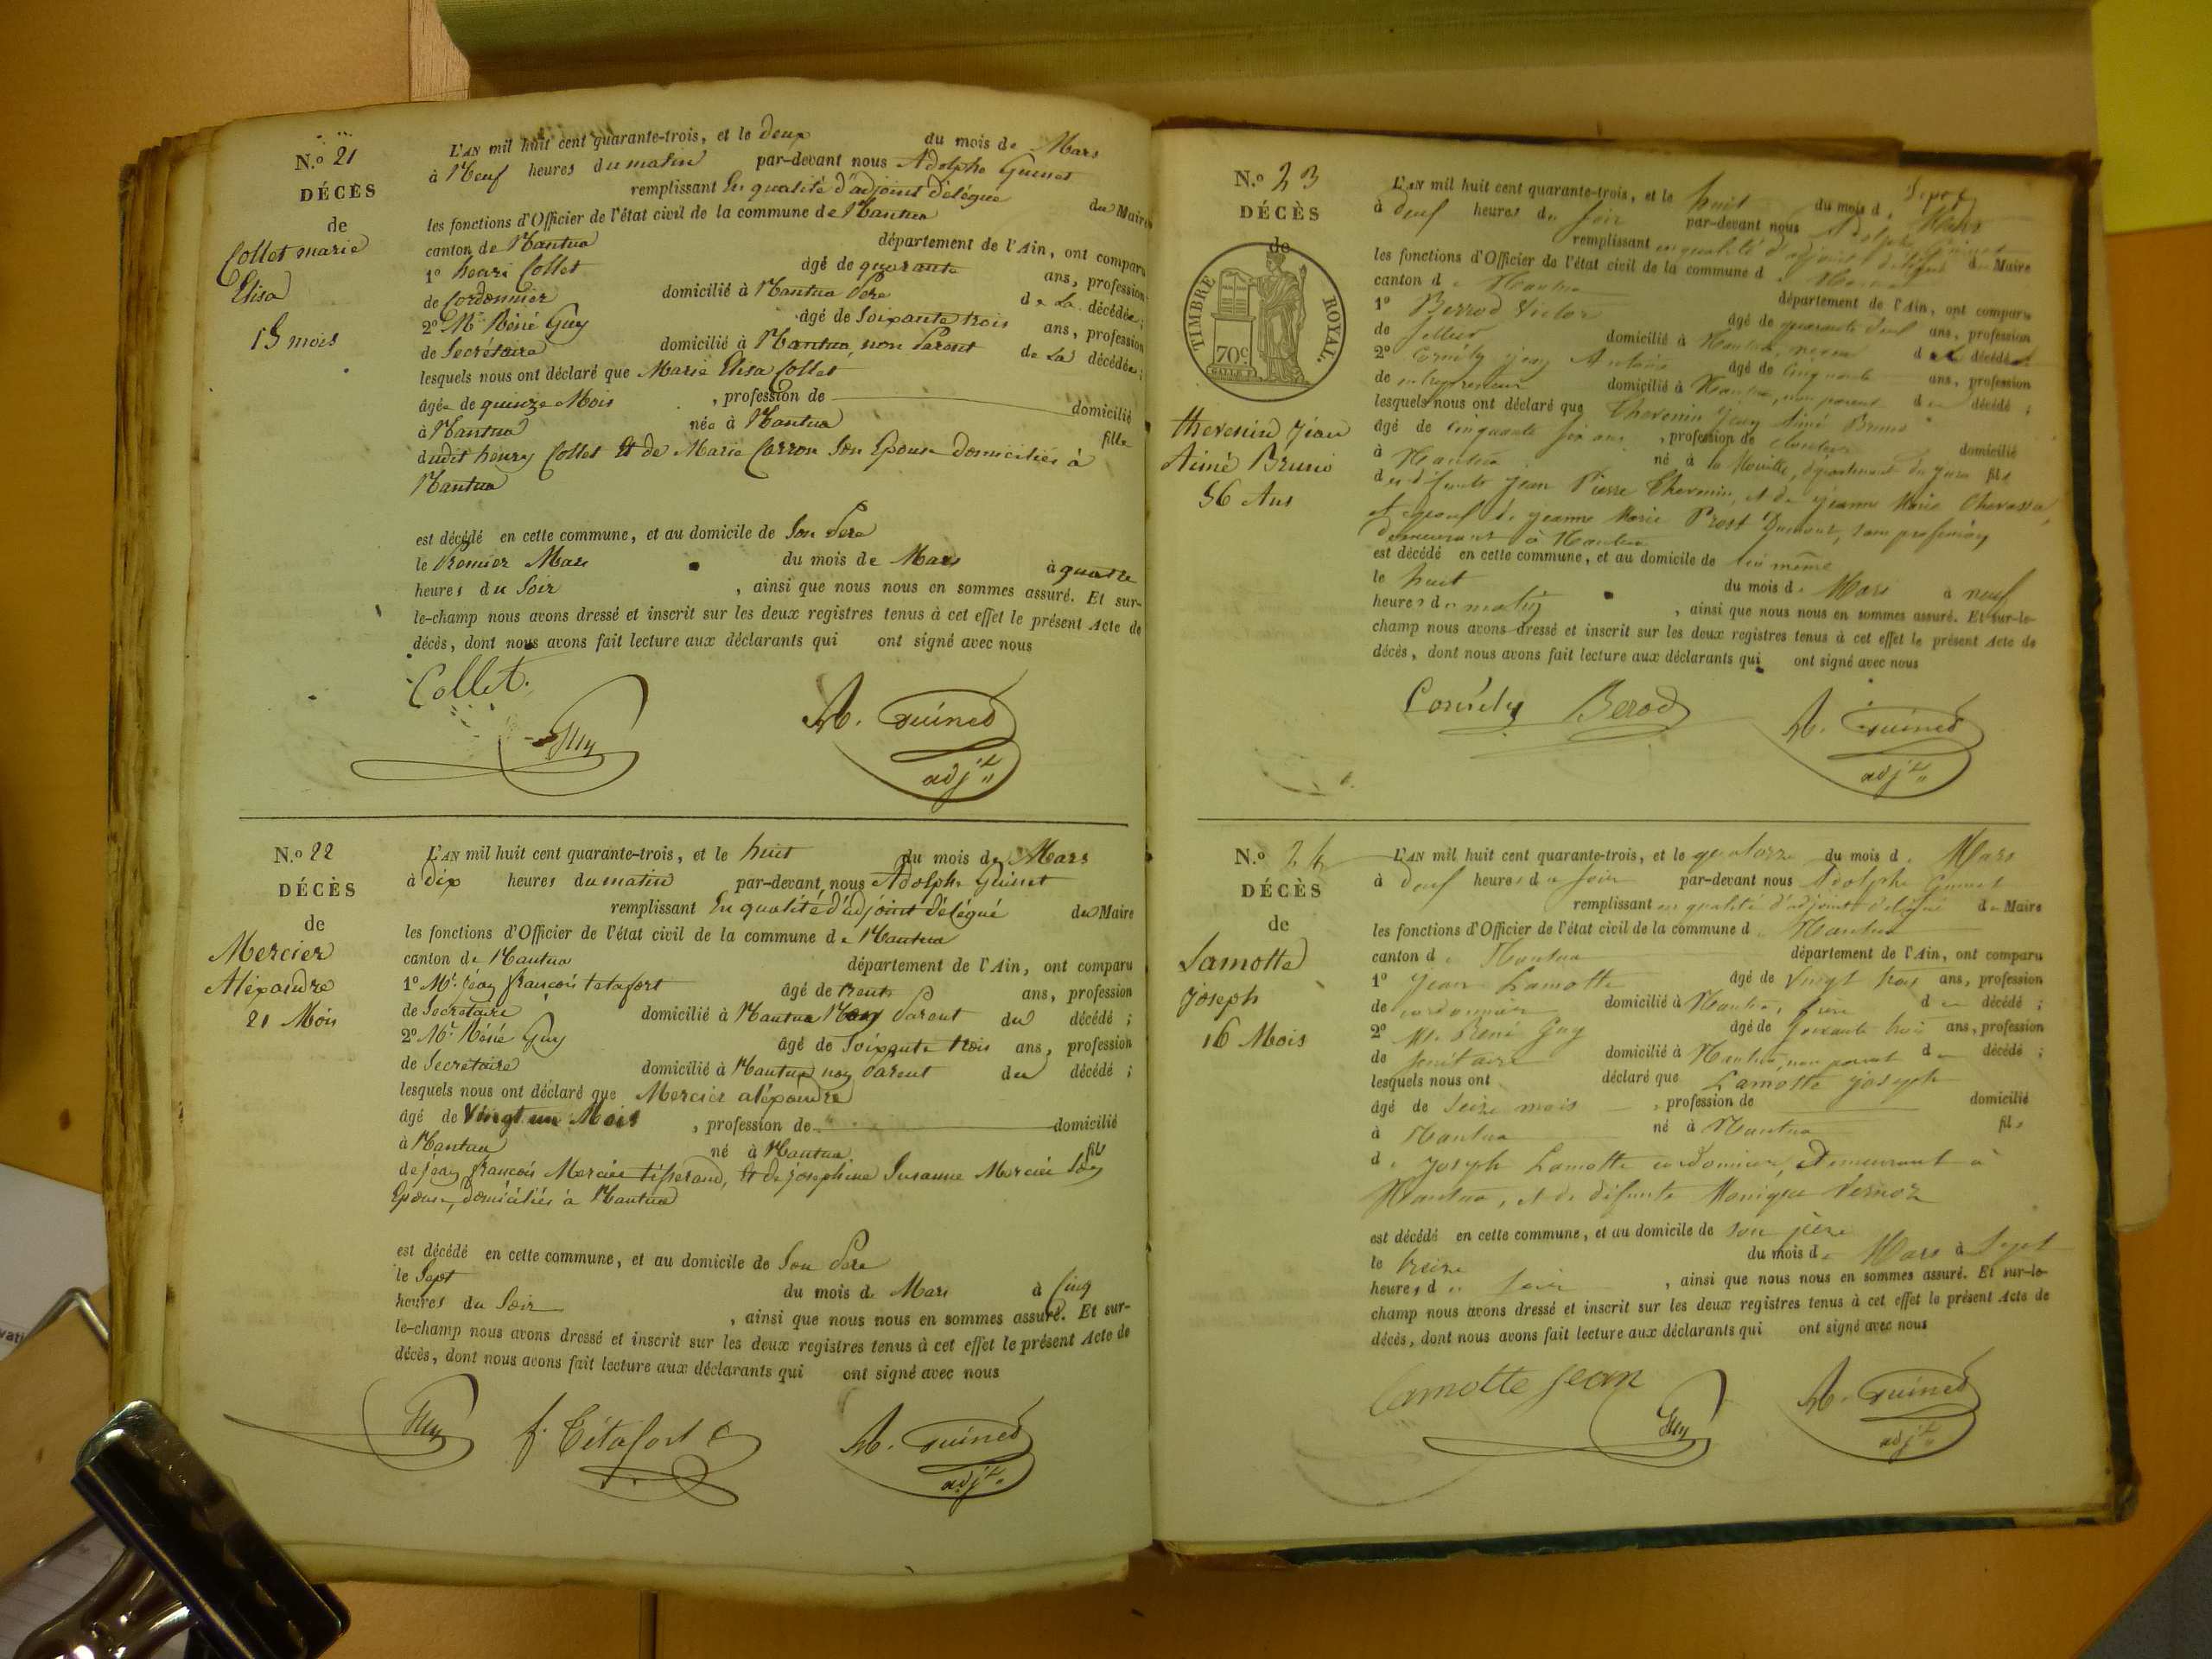 N.º 21
DÉCÈS
de
Collet marie
Elisa
15 mois
L'AN mil huit cent quarante-trois, et le deux du mois de Mars
à Neuf heures du matin par-devant nous Adolphe Guinet
remplissant En qualité d'adjoint délégué du Maire
les fonctions d'Officier de l'état civil de la commune de Nantua
canton de Nantua département de l'Ain, ont comparu
1º henri Collet âgé de quarante ans, profession
de Cordonnier domicilié à Nantua Père de La décédée;
2º Mr Réné Guy âgé de Soixante trois ans, profession
de Secrétaire domicilié à Nantua, non Parent de La décédée;
lesquels nous ont déclaré que Marie Elisa Collet
âgée de quinze Mois , profession de domicilié
à Nantua née à Nantua fille
dudit henry Collet Et de Marie Carron Son Epouse domiciliés à
Nantua
est décédé en cette commune, et au domicile de Son Père
le Premier Mars du mois de Mars à quatre
heures du Soir , ainsi que nous nous en sommes assuré. Et sur-
le-champ nous avons dressé et inscrit sur les deux registres tenus à cet effet le présent Acte de
décès, dont nous avons fait lecture aux déclarants qui ont signé avec nous
Collet.
Guy A. Guinet
adjt
N.º 22
DÉCÈS
de
Mercier
Aléxandre
21 Mois
L'AN mil huit cent quarante-trois, et le huit du mois de Mars
à dix heures du matin par-devant nous Adolphe Guinet
remplissant En qualité d'adjoint délégué du Maire
les fonctions d'Officier de l'état civil de la commune de Nantua
canton de Nantua département de l'Ain, ont comparu
1º Mr. jean françois tetafort âgé de trente ans, profession
de Secretaire domicilié à Nantua Non Parent du décédé;
2º Mr. Réné Guy âgé de Soixante trois ans, profession
de Secretaire domicilié à Nantua non Parent du décédé;
lesquels nous ont déclaré que Mercier aléxandre
âgé de Vingt un Mois , profession de domicilié
à Nantua né à Nantua fils
de jean françois Mercier tisserand, Et de josephine Susanne Mercier Son
Epouse, domiciliés à Nantua
est décédé en cette commune, et au domicile de Son Père
le Sept du mois de Mars à Cinq
heures du Soir , ainsi que nous nous en sommes assuré. Et sur-
le-champ nous avons dressé et inscrit sur les deux registres tenus à cet effet le présent Acte de
décès, dont nous avons fait lecture aux déclarants qui ont signé avec nous
Guy f. Tétafort A. Guinet
adjt
N.º 23
DÉCÈS
de
TIMBRE ROYAL.
70c
thevenin Jean
Aimé Bruno
56 Ans
L'AN mil huit cent quarante-trois, et le huit du mois de Mars
à deux heures du soir par-devant nous Adolphe Guinet
remplissant en qualité d'adjoint délégué du Maire
les fonctions d'Officier de l'état civil de la commune de Nantua
canton de Nantua département de l'Ain, ont comparu
1º Berrod Victor âgé de quarante deux ans, profession
de Sellier domicilié à Nantua, du décédé
2º Cornély Jean Antoine âgé de Cinquante ans, profession
de entrepreneur domicilié à Nantua, non parent du décédé;
lesquels nous ont déclaré que Thevenin Jean Aimé Bruno
âgé de cinquante six ans , profession de domicilié
à Nantua né à la département du Jura fils
des défunts Jean Pierre Thevenin, et de Jeanne Marie Chavassa,
et époux de Jeanne Marie Prost Dumont, sans profession,
demeurant à Nantua
est décédé en cette commune, et au domicile de lui même
le huit du mois de Mars à neuf
heures du matin , ainsi que nous nous en sommes assuré. Et sur-le-
champ nous avons dressé et inscrit sur les deux registres tenus à cet effet le présent Acte de
décès, dont nous avons fait lecture aux déclarants qui ont signé avec nous
Cornély Berod A. Guinet
adjt
N.º 24
DÉCÈS
de
Lamotte
joseph
16 Mois
L'AN mil huit cent quarante-trois, et le quatorze du mois de Mars
à deux heures du soir par-devant nous Adolphe Guinet
remplissant en qualité d'adjoint délégué du Maire
les fonctions d'Officier de l'état civil de la commune de Nantua
canton de Nantua département de l'Ain, ont comparu
1º Jean Lamotte âgé de Vingt trois ans, profession
de cordonnier domicilié à Nantua, du décédé;
2º Mr. René Guy âgé de Soixante trois ans, profession
de secrétaire domicilié à Nantua, non parent du décédé;
lesquels nous ont déclaré que Lamotte joseph
âgé de Seize mois , profession de domicilié
à Nantua né à Nantua fils
de Joseph Lamotte cordonnier, demeurant à
Nantua, et de défunte Monique Vernoz
est décédé en cette commune, et au domicile de son père
le treize du mois de Mars à Sept
heures du Soir , ainsi que nous nous en sommes assuré. Et sur-le-
champ nous avons dressé et inscrit sur les deux registres tenus à cet effet le présent Acte de
décès, dont nous avons fait lecture aux déclarants qui ont signé avec nous
Lamotte Jean Guy A. Guinet
adjt